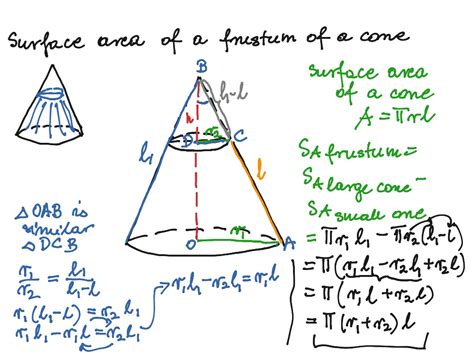 Surface area of a frustum of a cone
B
l₁-l
h
l₁
r₂
D
C
l
r₁
O
A
surface area
of a cone
A = πrl
SA frustum =
SA large cone -
SA small one
= πr₁l₁ - πr₂(l₁-l)
= π(r₁l₁ - r₂l₁ + r₂l)
= π(r₁l + r₂l)
= π(r₁+r₂)l
△OAB is
similar
△DCB
r₁/r₂ = l₁/(l₁-l)
r₁(l₁-l) = r₂l₁
r₁l₁ - r₁l = r₂l₁
r₁l₁ - r₂l₁ = r₁l